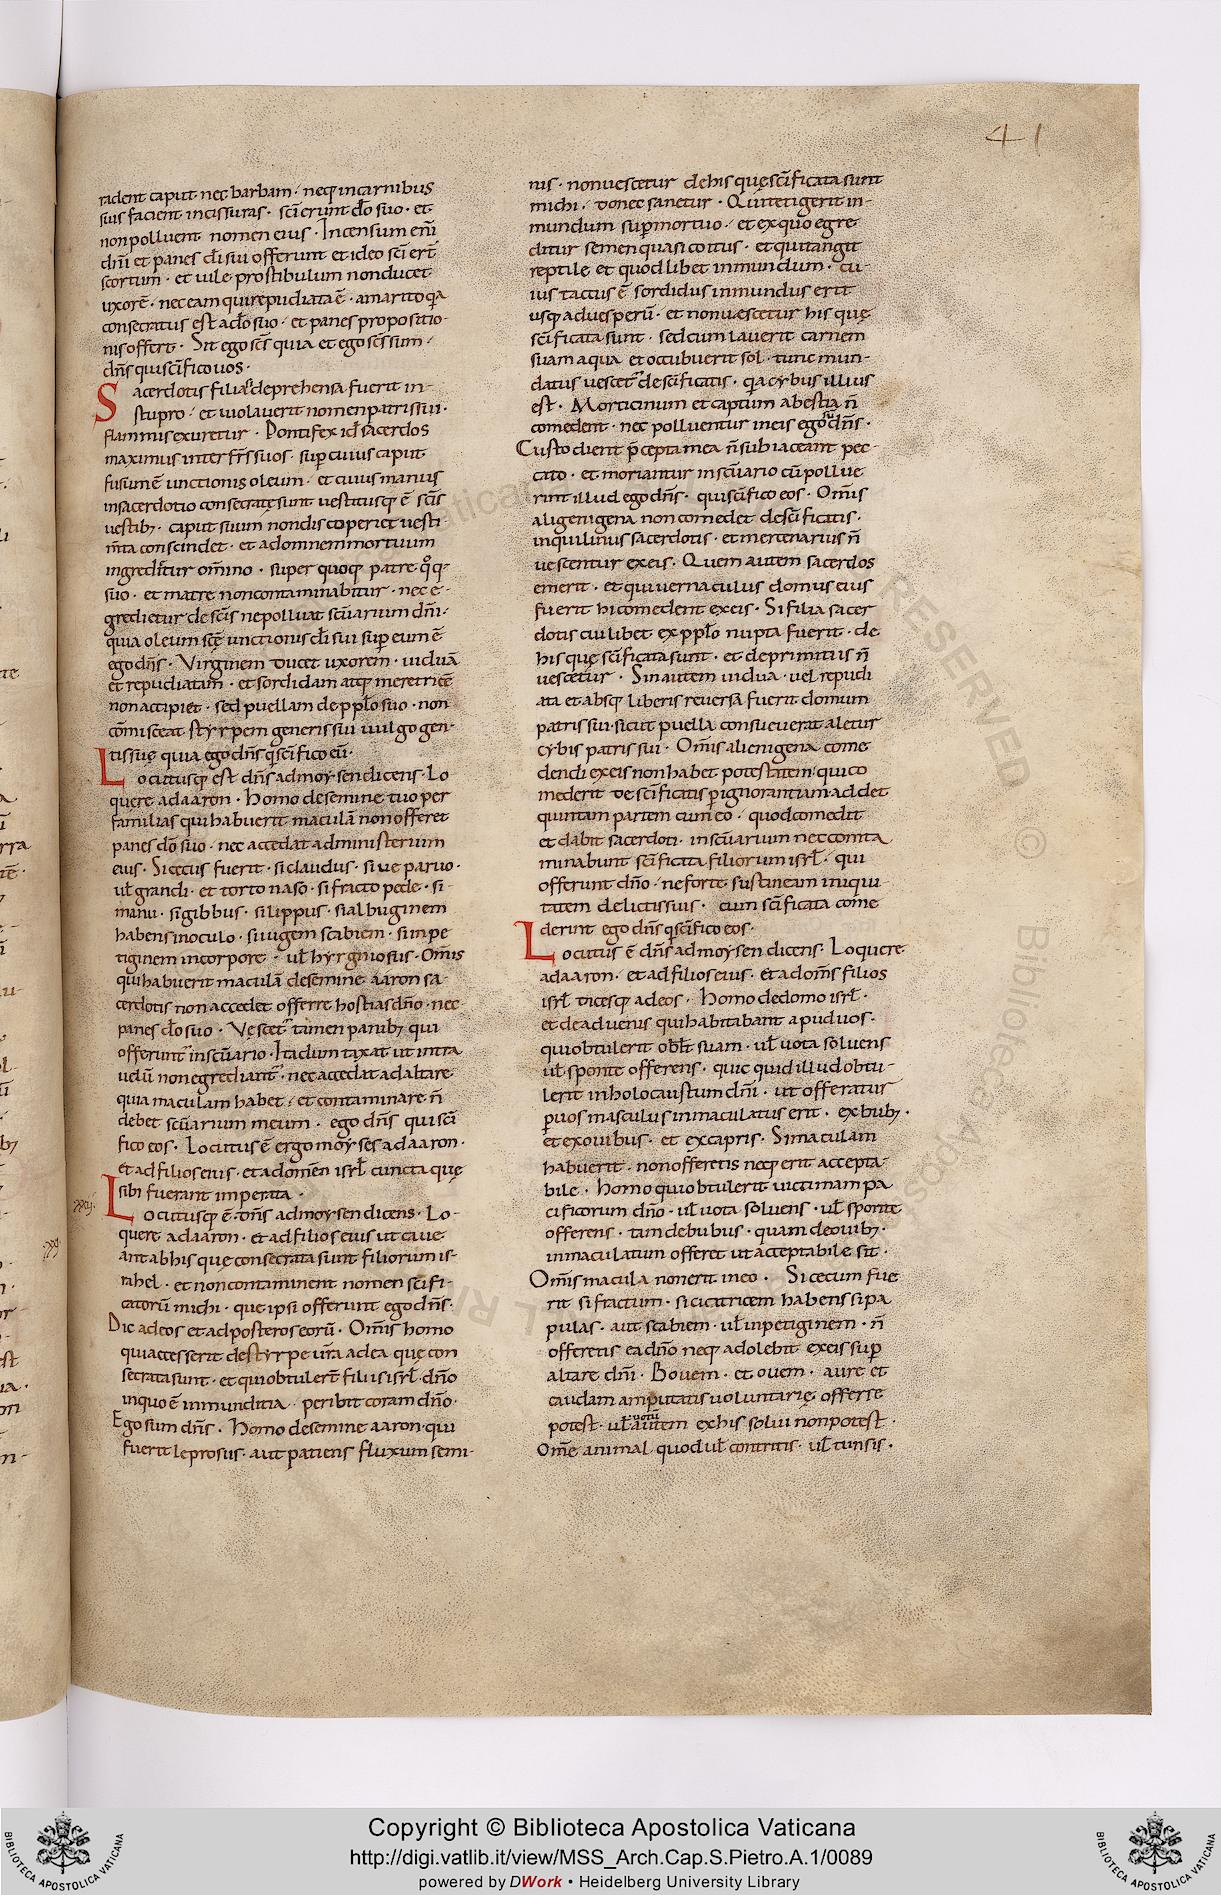 41
radent caput nec barbam · neq; incarnibus
suis facient incissuras · sc̄i erunt dō suo · et
non polluent nomen eius · Incensum eni̅
dn̄i et panes d̄i sui offerunt et ideo sc̄i ert̄
scortum · et uile prostibulum non ducet
uxorē · nec eam qui repudiata ē · a marito q̄a
consecratus est ad̄o suo · et panes propositio-
nis offert · Sit ego sc̄s quia et ego sc̄s sum ·
dn̄s qui sc̄ifico uos ·
Sacerdotis filia si deprehensa fuerit in-
stupro · et uiolauerit nomen patris sui ·
flammis exuretur · Pontifex id ē sacerdos
maximus inter fr̄s suos · sup cuius caput
fusum ē unctionis oleum · et cuius manus
insacerdotio consecratę sunt uestitusq; ē sc̄is
uestib; · caput suum non discoperiet uesti
m̄ta conscindet · et ad omnem mortuum
ingredit̄ur om̄ino · super quoq; patre q̊q-
suo · et matre non contaminabitur · nec e-
gredietur de sc̄is ne polluat sc̄uarium dn̄i ·
quia oleum sc̄ę unctionis d̄i sui sup eum ē
ego dn̄s · Virginem ducet uxorem · uiduā
et repudiatam · et sordidam atq; meretricē
non accipiet · sed puellam de pplo suo · non
cōmisceat styrpem generis sui uulgo gen-
tis suę quia ego dn̄s q sc̄ifico eū ·
Locutusq; est dn̄s ad moysen dicens · Lo
quere ad aaron · Homo de semine tuo per
familias qui habuerit maculā non offeret
panes dō suo · nec accedat ad ministerium
eius · Si cecus fuerit · si claudus · si ue paruo ·
ul̄ grandi · et torto naso · si fracto pede · si-
manu · si gibbus · si lippus · si albuginem
habens in oculo · si iugem scabiem · si inpe
tiginem in corpore · ul̄ hyrgniosus · Om̄is
qui habuerit maculā de semine aaron sa-
cerdotis non accedet offerre hostias dn̄o · nec
panes dō suo · Vescet̄ tamen panib; qui
offerunt̄ in sc̄uario · Ita dum taxat ut intra
uelū non egrediant̄ · nec accedat ad altare
quia maculam habet · et contaminare n̄
debet sc̄uarium meum · ego dn̄s qui sc̄i
fico eos · Locutus ē ergo moyses ad aaron ·
et ad filios eius · et ad om̄en isrł cuncta quę
sibi fuerant imperata ·
xxij
Locutusq; ē dn̄s ad moysen dicens · Lo-
quere ad aaron · et ad filios eius ut caue
ant ab his quę consecrata sunt filiorum is-
rahel · et non contaminent nomen sc̄ifi-
catorū michi · que ipsi offerunt ego dn̄s ·
Dic ad eos et ad posteros eorū · Om̄is homo
qui accesserit de styrpe ur̄a ad ea quę con
secrata sunt · et qui obtulert̄ filii isrł dn̄o
in quo ē inmunditia · peribit coram dn̄o ·
Ego sum dn̄s · Homo de semine aaron · qui
fuerit leprosus · aut patiens fluxum semi-
nis · non uescetur de his quę sc̄ificata sunt
michi · donec sanetur · Qui tetigerit in-
mundum sup mortuo · et ex quo egre
ditur semen quasi coitus · et qui tangit
reptile et quod libet inmundum · cu-
ius tactus ē sordidus inmundus erit
usq; ad uesperū · et non uescetur his quę
sc̄ificata sunt · sed cum lauerit carnem
suam aqua et occubuerit sol · tunc mun-
datus uescet̄ de sc̄ificatis · q̄a cybus illius
est · Morticinum et captum a bestia n̄
comedent · nec polluentur in eis ego sū dn̄s ·
Custodient p̄cepta mea n̄ subiaceant pec-
cato · et moriantur in sc̄uario cū pollue
rint illud ego dn̄s · qui sc̄ifico eos · Om̄is
aligenigena non comedet de sc̄ificatis ·
inquilinus sacerdotis · et mercenarius n̄
uescentur ex eis · Quem autem sacerdos
emerit · et qui uernaculus domus eius
fuerit hi comedent ex eis · Si filia sacer
dotis cui libet ex pplo nupta fuerit · de
his quę sc̄ificata sunt · et de primitiis n̄
uescetur · Sin autem uidua · uel repudi
ata et absq; liberis reuersa fuerit domum
patris sui · sicut puella consueuerat aletur
cybis patris sui · Om̄is alienigena come
dendi ex eis non habet potestatem · qui co
mederit de sc̄ificatis p ignorantiam addet
quintam partem cum eo · quod comedit
et dabit sacerdoti · in sc̄uarium nec conta
minabunt sc̄ificata filiorum isrł · qui
offerunt dn̄o · ne forte sustineam iniqui-
tatem delictis suis · cum sc̄ificata come
derint ego dn̄s q sc̄ifico eos ·
Locutus ē dn̄s ad moysen dicens · Loquere
ad aaron · et ad filios eius · et ad om̄s filios
isrł dicesq; ad eos · Homo de domo isrł ·
et de aduenis qui habitabant apud uos ·
qui obtulerit obl̄t suam · ul̄ uota soluens
ul̄ sponte offerens · quic quid illud obtu-
lerit in holocaustum dn̄i · ut offeratur
p uos masculus inmaculatus erit · ex bub; ·
et ex ouibus · et ex capris · Si maculam
habuerit · non offeretis neq; erit accepta-
bile · Homo qui obtulerit uictimam pa
cificorum dn̄o · ul̄ uota soluens · ul̄ sponte
offerens · tam de bubus · quam de ouib; ·
inmaculatum offeret ut acceptabile sit ·
Om̄is macula non erit in eo · Si cecum fue
rit si fractum · si cicatricem habens si pa
pulas · aut scabiem · ul̄ inpetiginem · n̄
offeretis ea dn̄o neq; adolebit ex eis sup
altare dn̄i · Bouem · et ouem · aure et
caudam amputatis uoluntarię offerre
potest · ul̄ uotū autem ex his solui non potest ·
Om̄e animal quod ul̄ contritis · ul̄ tunsis ·
Copyright © Biblioteca Apostolica Vaticana
http://digi.vatlib.it/view/MSS_Arch.Cap.S.Pietro.A.1/0089
powered by DWork • Heidelberg University Library
BIBLIOTECA APOSTOLICA VATICANA
BIBLIOTECA APOSTOLICA VATICANA